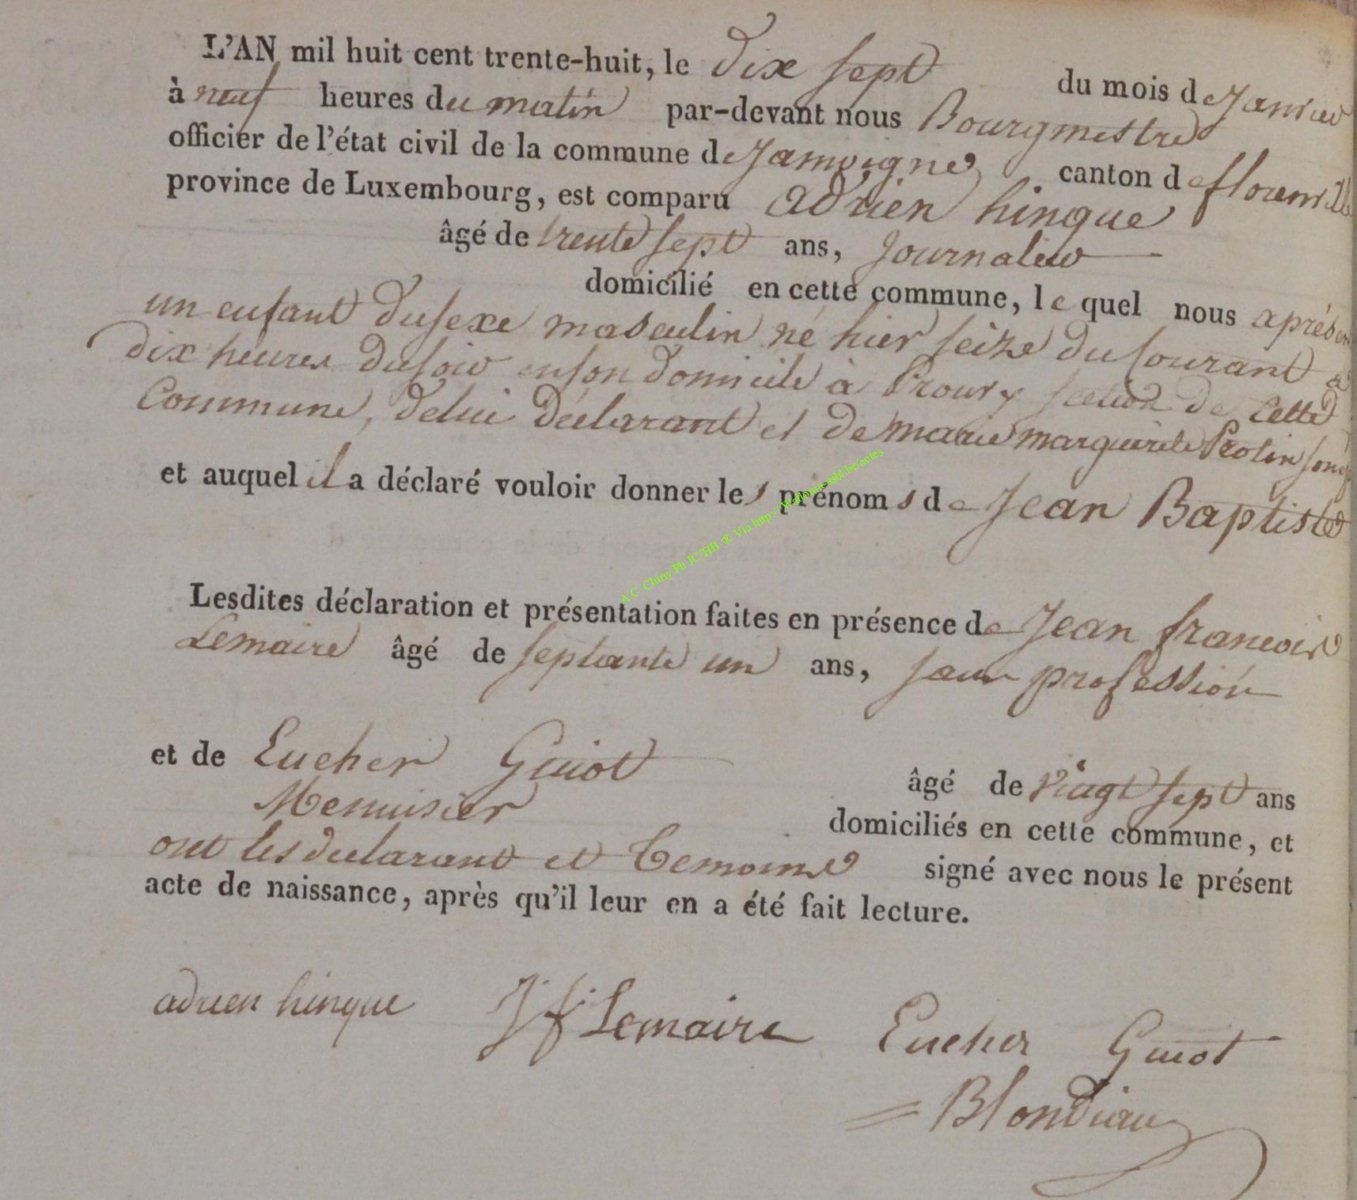 L'AN mil huit cent trente-huit, le dix sept du mois de Janvier
à neuf heures du matin par-devant nous Bourgmestre
officier de l'état civil de la commune de Jamoigne canton de florenville
province de Luxembourg, est comparu adrien hinque
âgé de trente sept ans, Journalier
domicilié en cette commune, le quel nous a présen
un enfant du sexe masculin né hier seize du courant a
dix heures du soir en son domicile à Prouvy section de cette
Commune, de lui déclarant et de marie marguerite Protin son
et auquel il a déclaré vouloir donner les prénoms de Jean Baptiste
Lesdites déclaration et présentation faites en présence de Jean francois
Lemaire âgé de septante un ans, sans profession
et de Eucher Guiot âgé de vingt sept ans
Menuisier domiciliés en cette commune, et
ont les declarant et temoins signé avec nous le présent
acte de naissance, après qu'il leur en a été fait lecture.
adrien hinque J f Lemaire Eucher Guiot
Blondiau